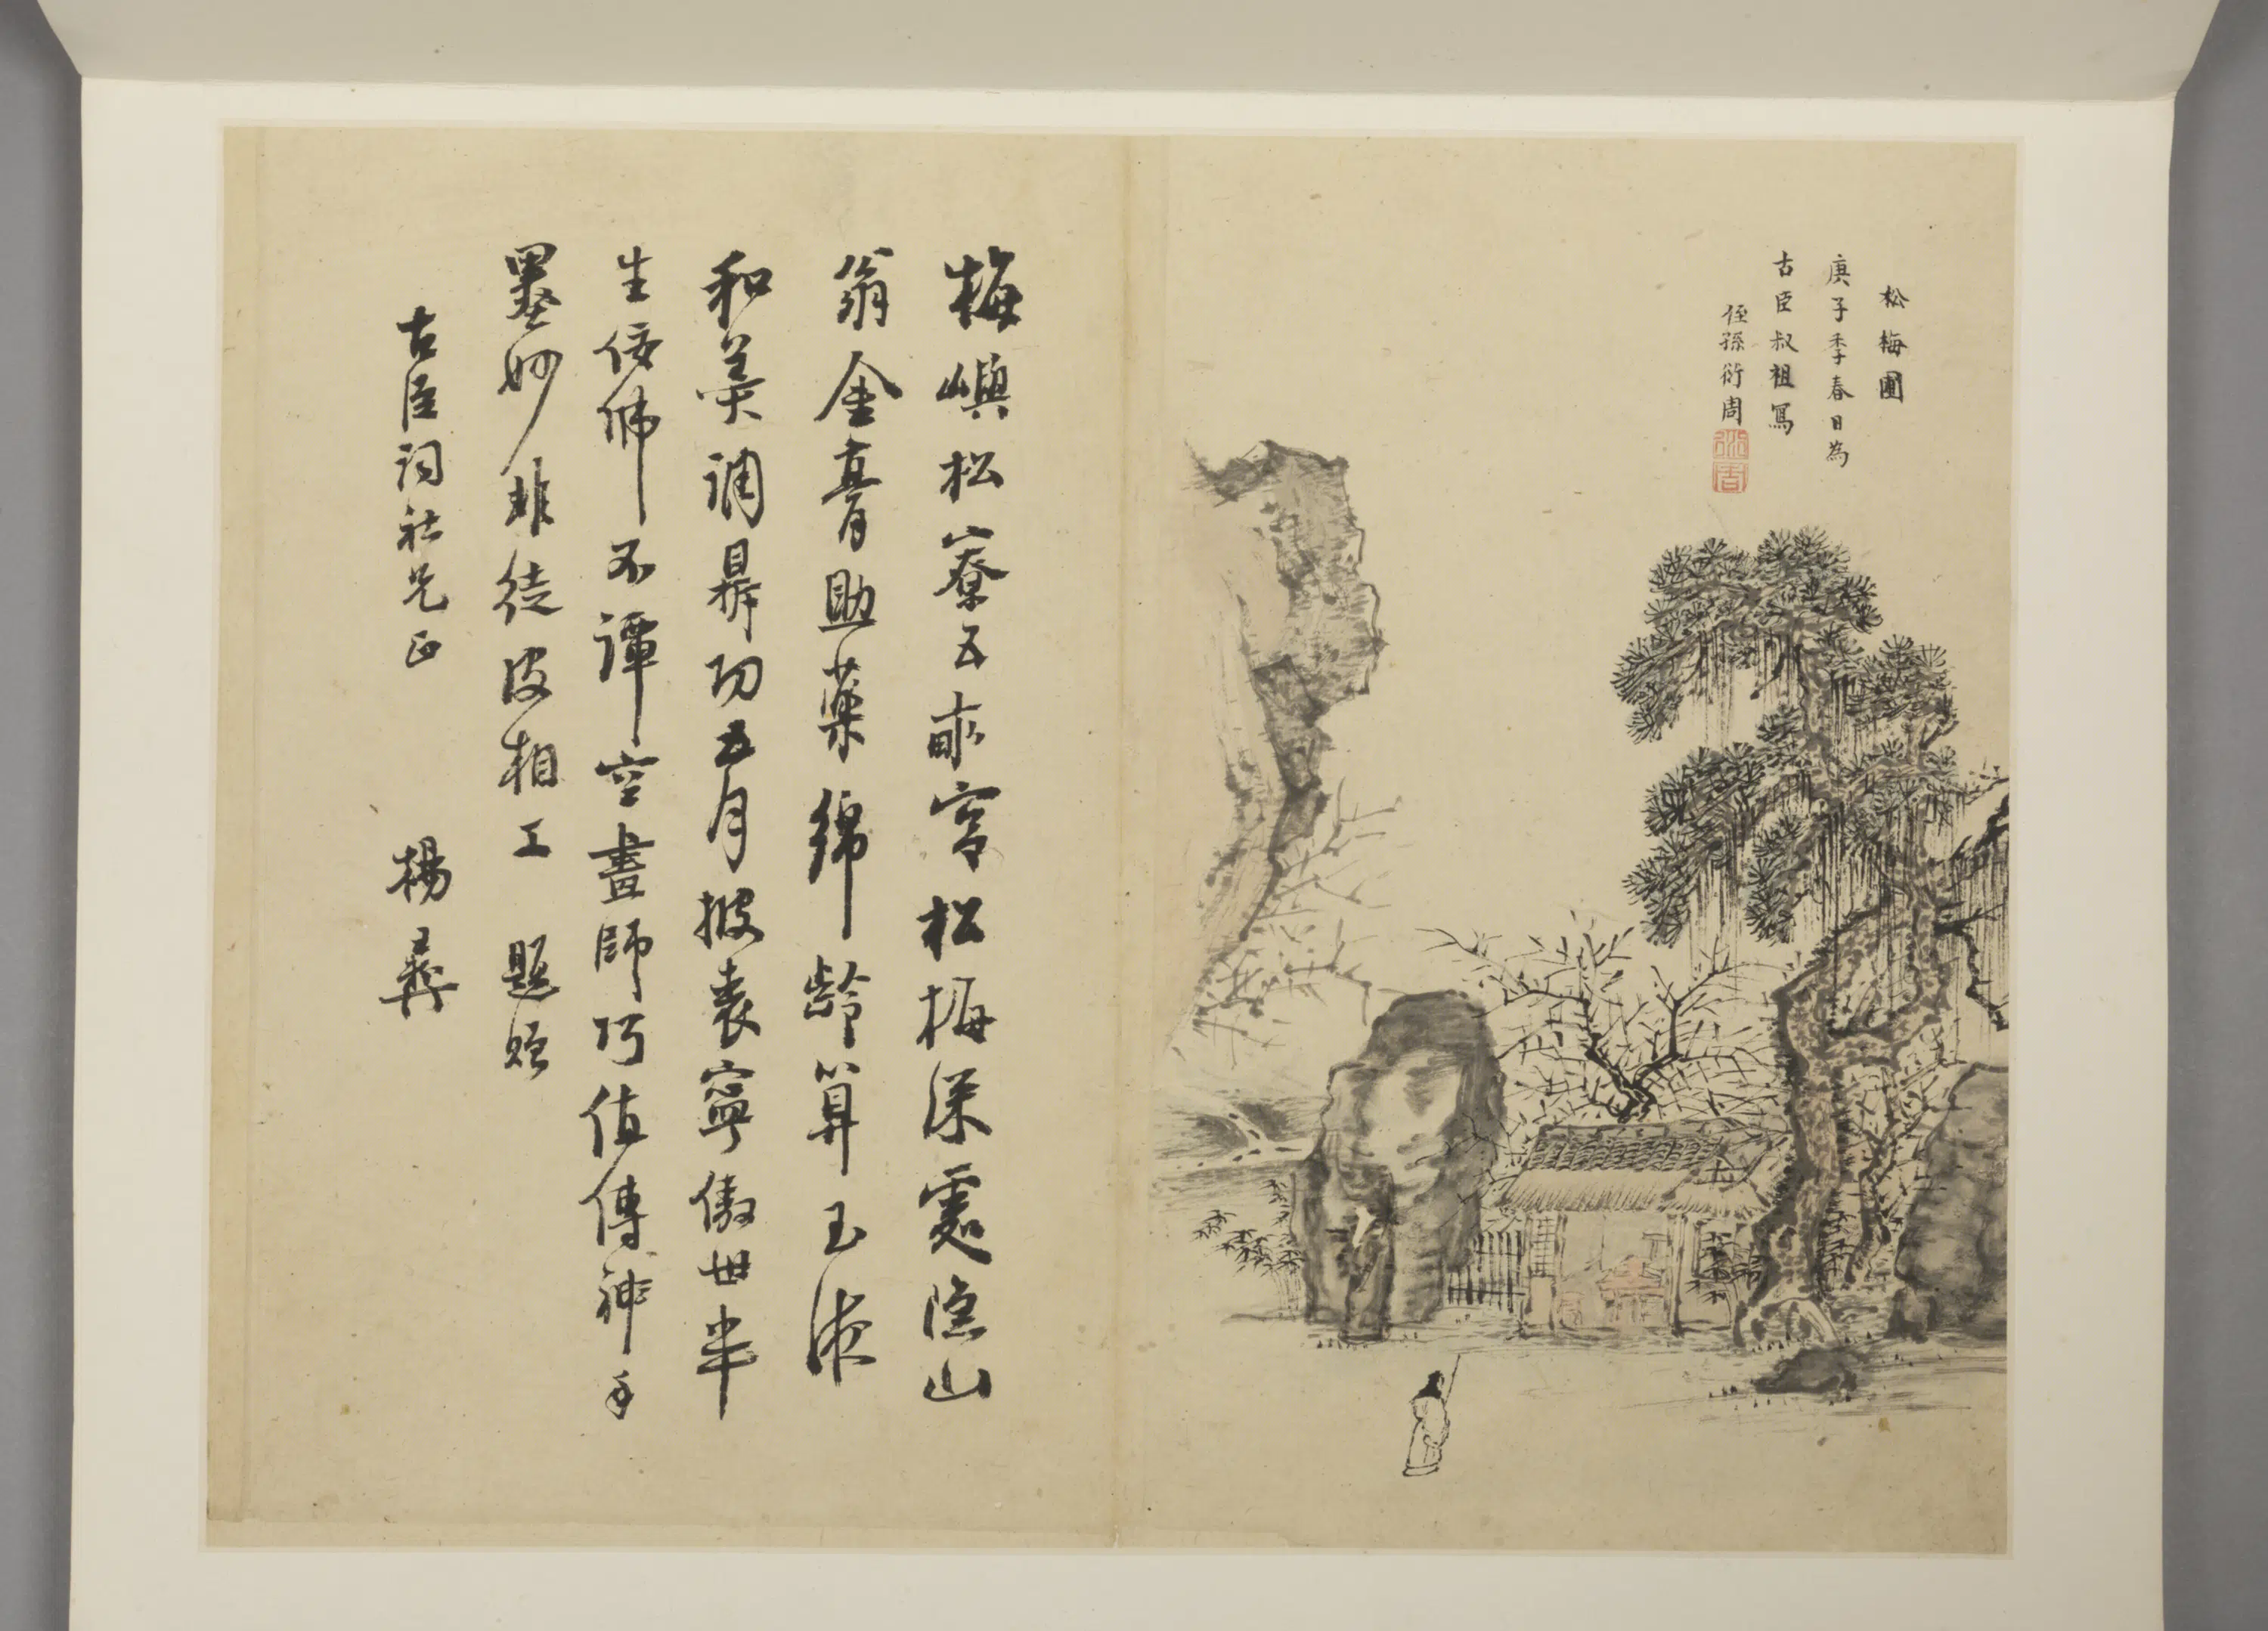 松梅圃
庚子季春日為
古臣叔祖寫
侄孫衍周
衍周
梅嶼松寮五畝宮松梅深處隱山
翁金膏助藥綿齡算玉液
和羹調鼎功五月披裘寧傲世半
生佞佛不譚空畫師巧值傳神手
墨妙非徒皮相工 題贈
古臣詞社兄正 楊彝